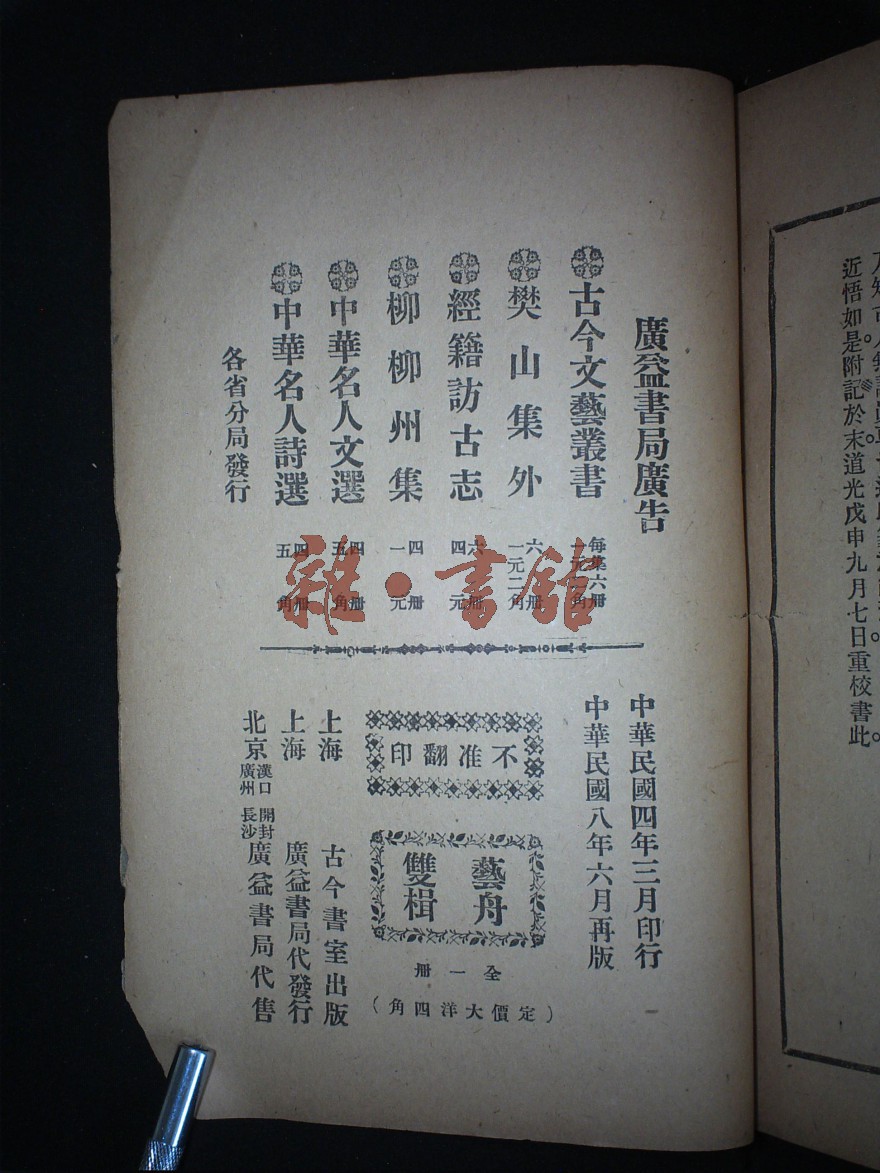 近悟如是附記於末道光戊申九月七日重校書此。
廣益書局廣告
古今文藝叢書 每集六冊 一元二角
樊山集外 六冊 一元二角
經籍訪古志 六冊 四元
柳柳州集 四冊 一元
中華名人文選 四冊 五角
中華名人詩選 四冊 五角
各省分局發行
雜·書館
中華民國四年三月印行
中華民國八年六月再版
不准翻印
藝舟
雙楫
全一冊
(定價大洋四角)
上海 古今書室出版
上海 廣益書局代發行
北京 漢口 廣州 開封 長沙 廣益書局代售